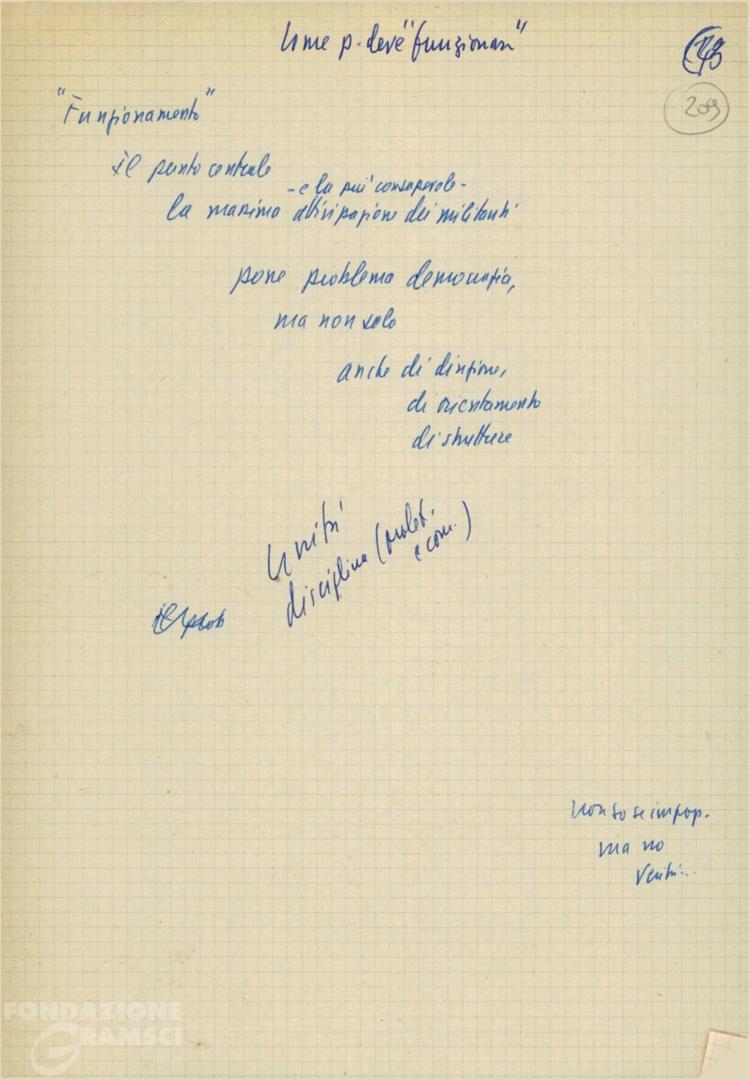 Come p. deve "funzionare"
209
"Funzionamento"
il punto centrale
- e la più consapevole -
la massima attivizzazione dei militanti
pone problema democrazia,
ma non solo
anche di direzione,
di orientamento
di strutture
Unità
disciplina (prolet.
e com.)
il
Non so se impop.
ma no
FONDAZIONE
GRAMSCI